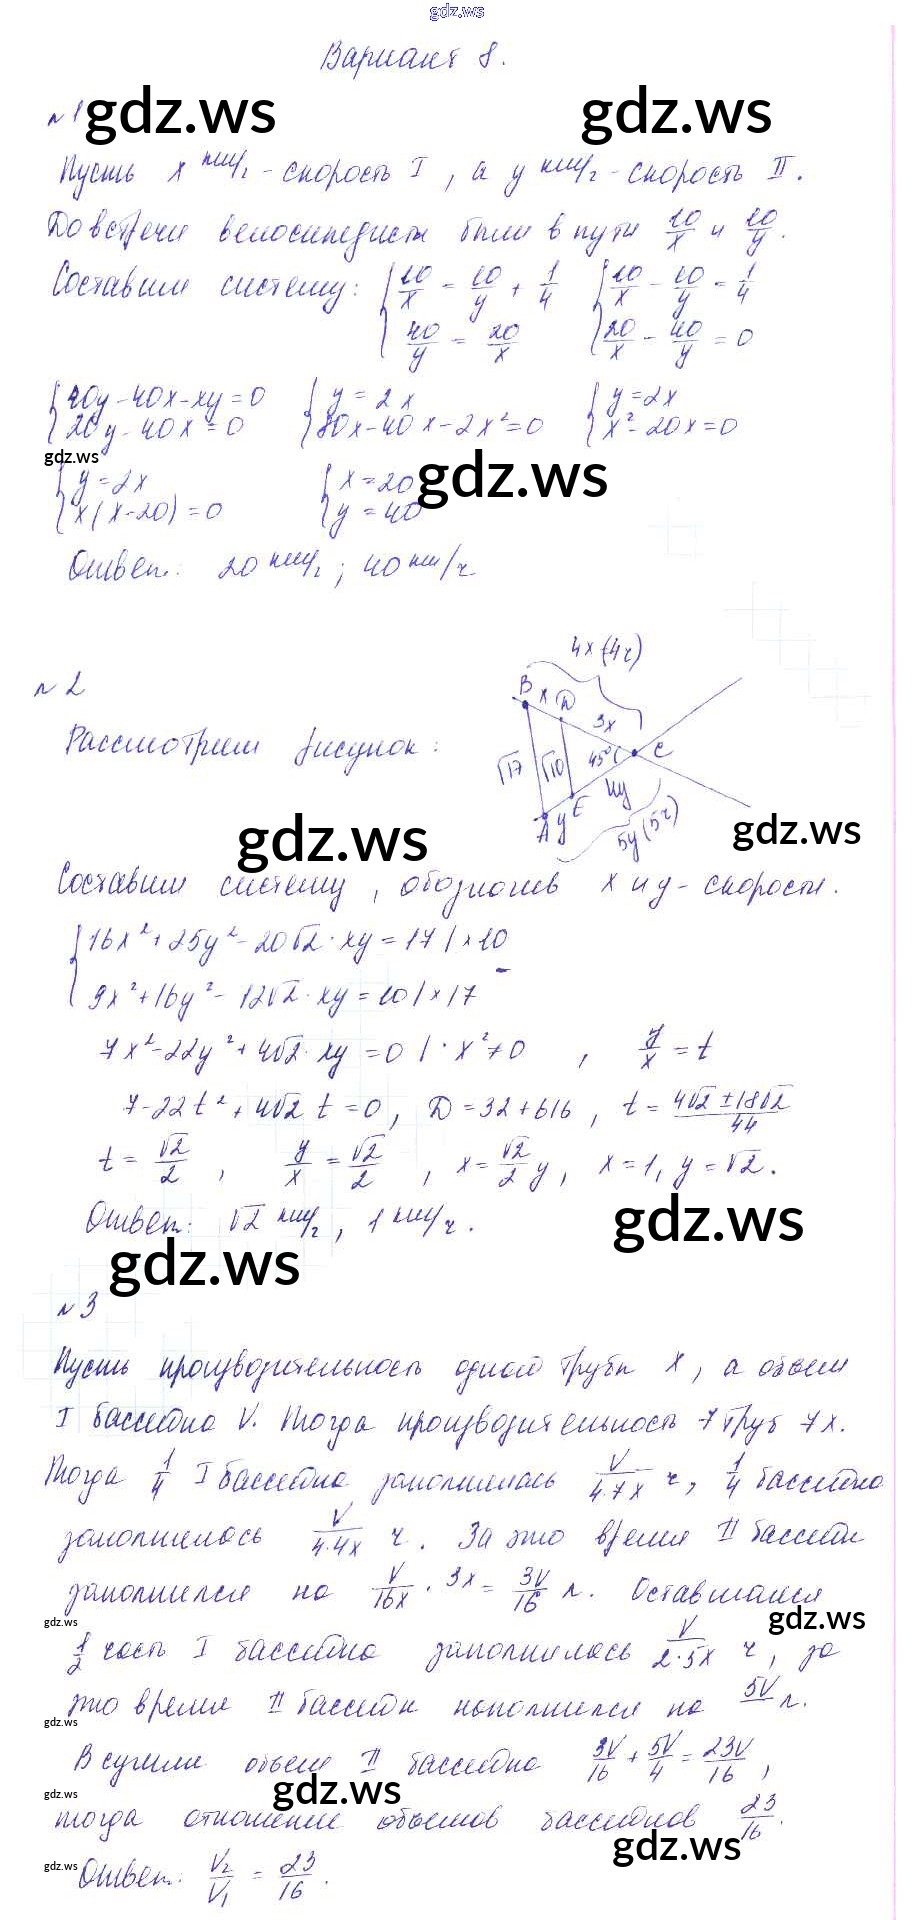 gdz.ws
Вариант 8.
№1 gdz.ws gdz.ws
Пусть x км/ч - скорость I, а y км/ч - скорость II.
До встречи велосипедисты были в пути 10/x и 10/y.
Составим систему: { 10/x = 10/y + 1/4 { 10/x - 10/y = 1/4
40/y = 20/x 20/x - 40/y = 0
{ 40y - 40x - xy = 0 { y = 2x { y = 2x
20y - 40x = 0 80x - 40x - 2x² = 0 x² - 20x = 0
gdz.ws gdz.ws
{ y = 2x { x = 20
x(x-20) = 0 y = 40
Ответ: 20 км/ч; 40 км/ч
№2
4x (4ч)
B x D 3x
√17 √10 45° C
A y E 4y
5y (5ч)
Рассмотрим рисунок:
gdz.ws gdz.ws
Составим систему, обозначив x и y - скорости.
{ 16x² + 25y² - 20√2 · xy = 17 | × 10
9x² + 16y² - 12√2 · xy = 10 | × 17
7x² - 22y² + 4√2 · xy = 0 | · x² ≠ 0 , y/x = t
7 - 22t² + 4√2 t = 0, D = 32 + 616, t = 4√2 ± 18√2 / 44
t = √2/2 , y/x = √2/2 , x = √2/2 y, x = 1, y = √2.
Ответ: √2 км/ч, 1 км/ч.
gdz.ws gdz.ws
№3
Пусть производительность одной трубы x, а объем
I бассейна V. Тогда производительность 7 труб 7x.
Тогда 1/4 I бассейна заполнилась V/4·7x ч, 1/4 бассейна
заполнилась V/4·4x ч. За это время II бассейн
заполнился на V/16x · 3x = 3V/16 л. Оставшаяся
gdz.ws gdz.ws
1/2 часть I бассейна заполнилась V/2·5x ч, за
это время II бассейн наполнился на 5V л.
gdz.ws
В сумме объем II бассейна 3V/16 + 5V/4 = 23V/16,
gdz.ws gdz.ws
тогда отношение объемов бассейнов 23/16.
gdz.ws gdz.ws
Ответ: V₂/V₁ = 23/16.